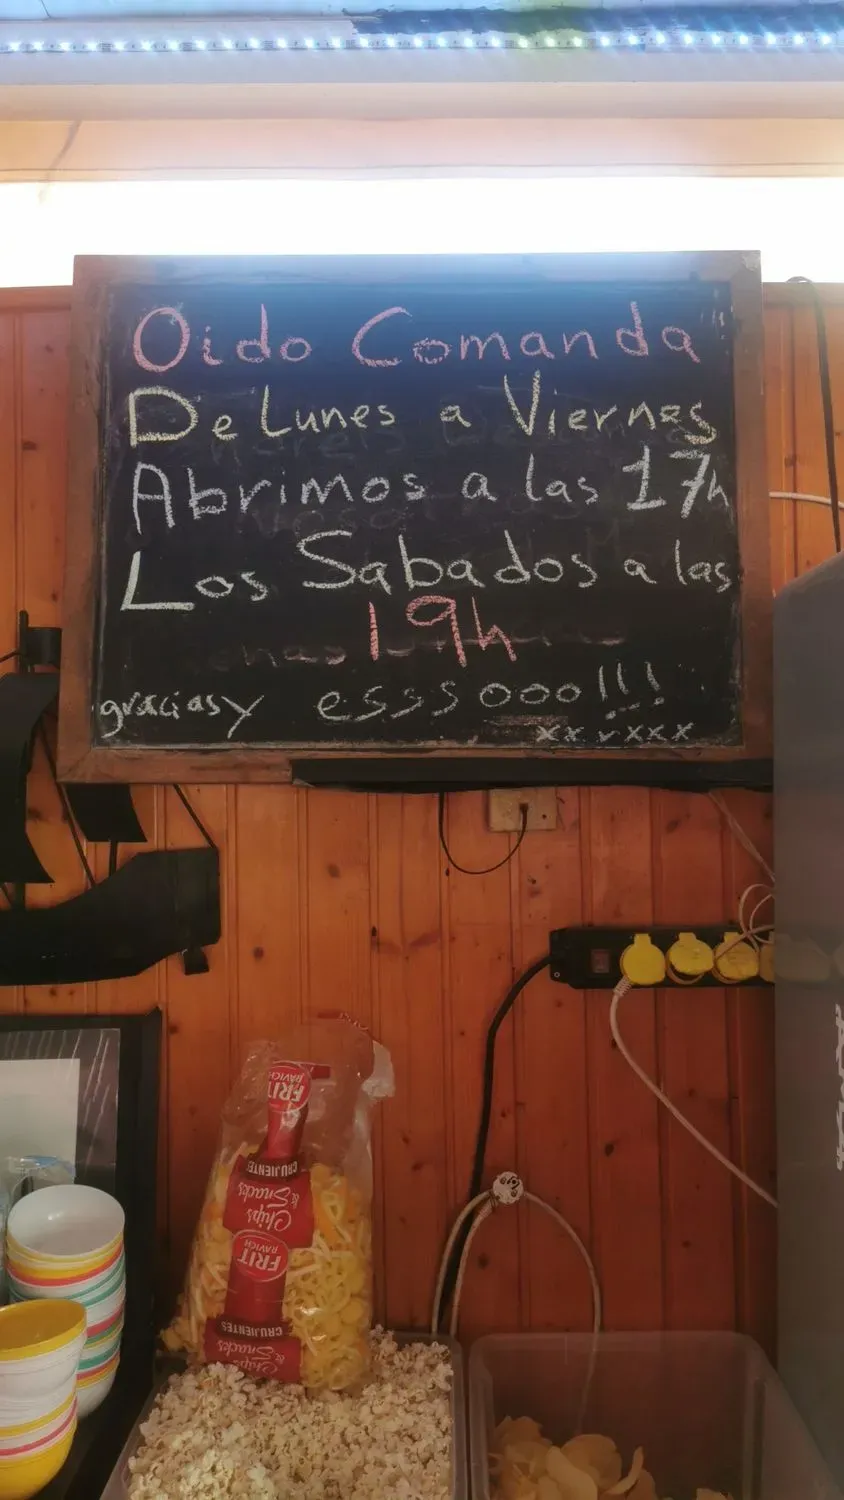 Oido Comanda
De Lunes a Viernes
Abrimos a las 17h
Los Sabados a las
19h
gracias y esssooo!!!
xxxxxx
FRIT
RAVICH
CRUJIENTES
Chips
& Snacks
FRIT
RAVICH
CRUJIENTES
Chips
& Snacks